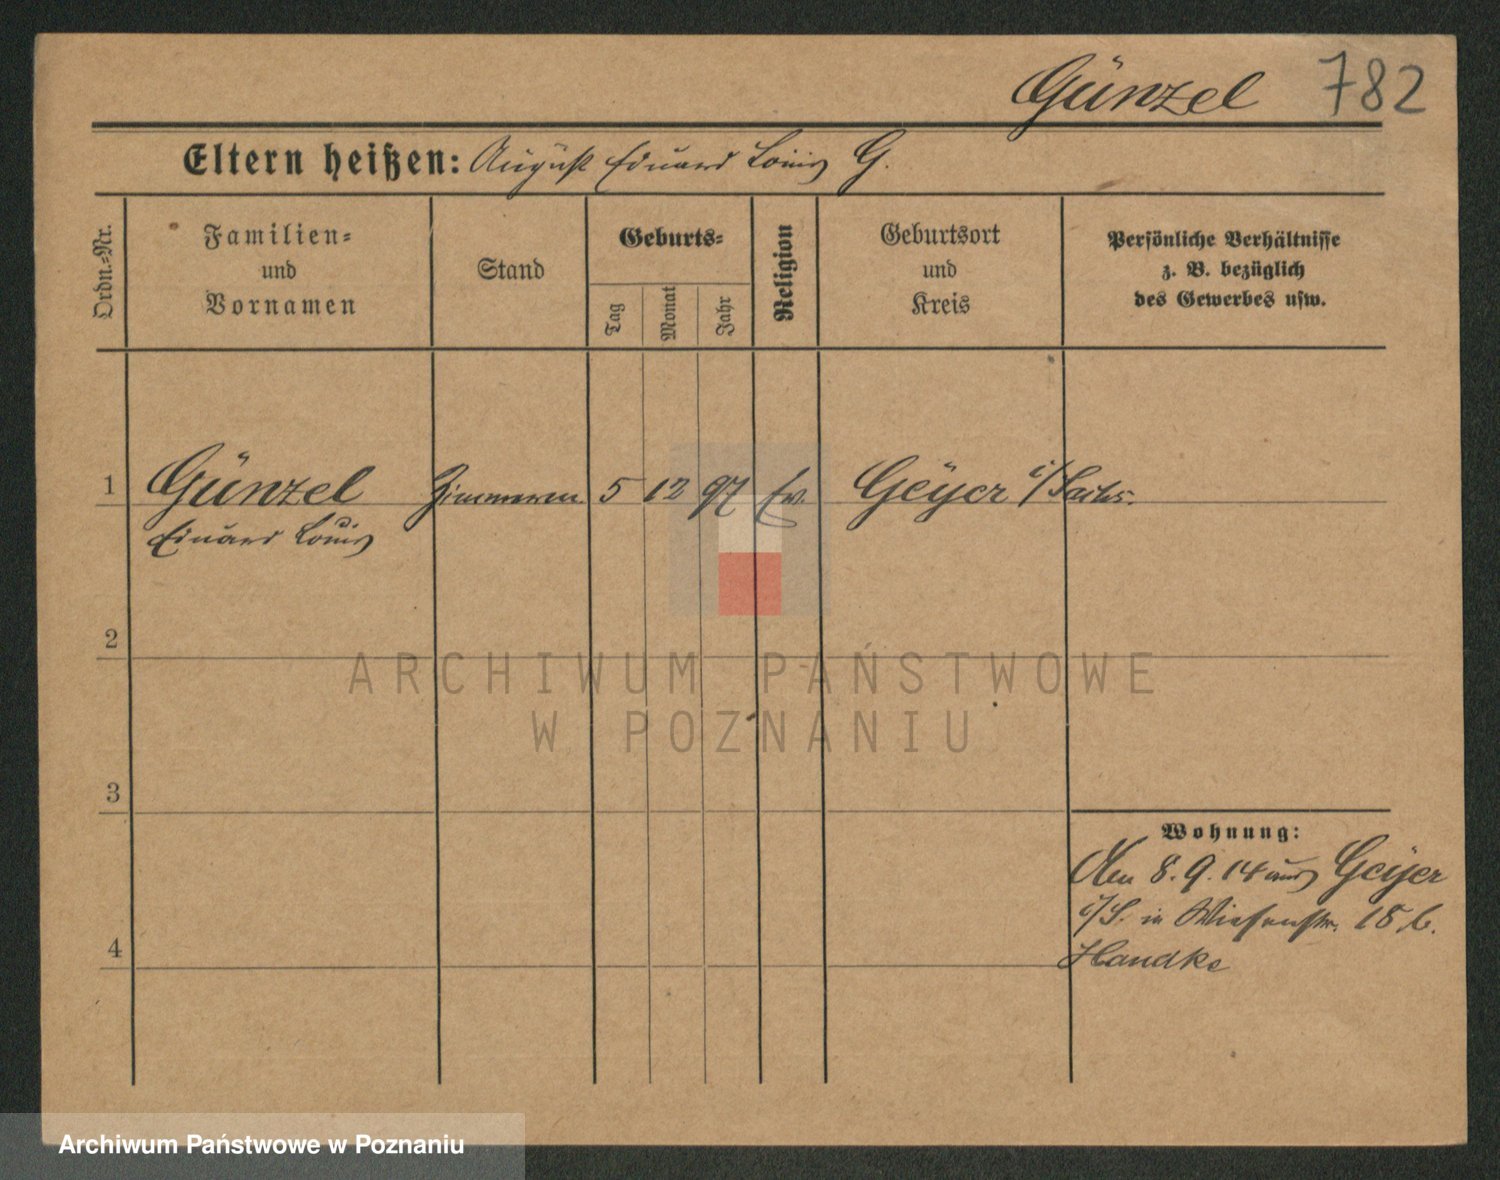 Günzel 782
Eltern heißen: August Eduard Louis G.
Ordn.=Nr.
Familien=
und
Vornamen
Stand
Geburts=
Tag
Monat
Jahr
Religion
Geburtsort
und
Kreis
Persönliche Verhältnisse
z. B. bezüglich
des Gewerbes usw.
1 Günzel Zimmerm 5 12 97 Ev. Geyer i/Sachs.
Eduard Louis
2
ARCHIWUM PAŃSTWOWE
W POZNANIU
3
Wohnung:
Den 8. 9. 14 aus Geyer
i/S. in Wiesenstr. 18 b.
4
Handke
Archiwum Państwowe w Poznaniu